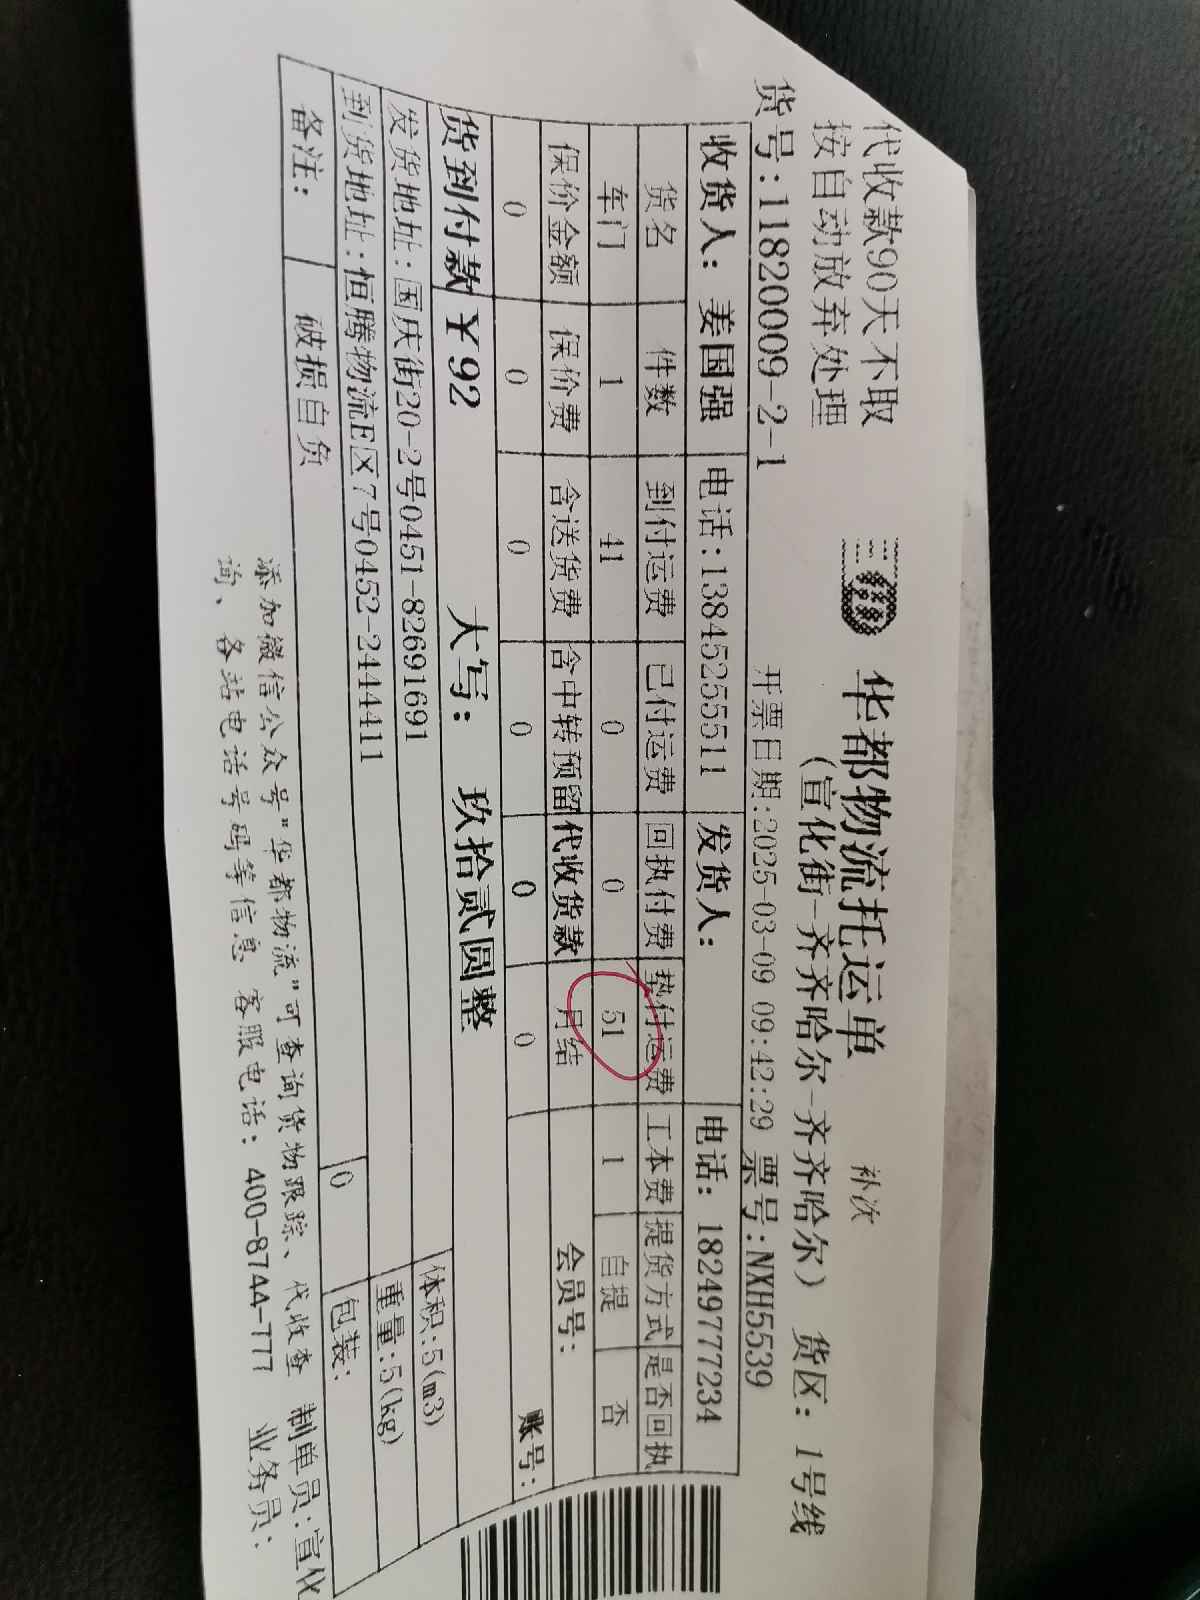 代收款90天不取
按自动放弃处理
华都物流托运单
补次
(宣化街-齐齐哈尔-齐齐哈尔) 货区: 1号线
货号:11820009-2-1 开票日期:2025-03-09 09:42:29 票号:NXH5539
收货人: 姜国强 电话:13845255511 发货人: 电话: 18249777234
货名 件数 到付运费 已付运费 回执付费 垫付运费 工本费 提货方式 是否回执
车门 1 41 0 0 51 1 自提 否
保价金额 保价费 含送货费 含中转预留 代收货款 月结 会员号:
0 0 0 0 0 0 账号:
货到付款 ￥92 大写: 玖拾贰圆整
发货地址:国庆街20-2号0451-82691691 体积:5(m3)
到货地址:恒腾物流E区7号0452-2444411 重量:5(kg)
备注: 破损自负 0 包装:
添加微信公众号"华都物流"可查询货物跟踪、代收查 制单员:宣化
询、各站电话号码等信息 客服电话: 400-8744-777 业务员: